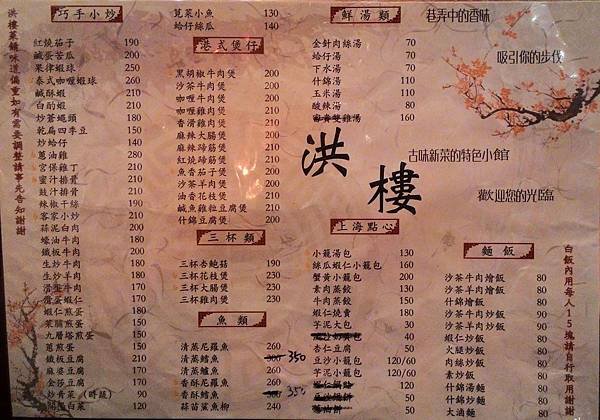 洪樓菜餚味道偏重如有需要調整請事先告知謝謝
巧手小炒
紅燒茄子 190
鹹蛋苦瓜 200
果律蝦球 250
泰式咖喱蝦球 260
鹹酥蝦 210
白酌蝦 210
炒蒼蠅頭 180
乾扁四季豆 150
炒蛤仔 140
蔥油雞 230
宮保雞丁 210
蜜汁排骨 210
豉汁排骨 210
辣椒干絲
客家小炒 210
蒜泥白肉
蠔油牛肉
鐵板牛肉
生炒牛肉
生炒羊肉
滑蛋牛肉
滑蛋蝦仁
蝦仁煎蛋
菜脯煎蛋
九層塔煎蛋
蔥煎蛋
鐵板豆腐 210
麻婆豆腐
金莎豆腐
炒青菜(時蔬)
開陽白菜
莧菜小魚 130
蛤仔絲瓜 140
港式煲仔
黑胡椒牛肉煲 200
沙茶牛肉煲 200
咖喱牛肉煲 200
香滑雞肉煲 200
麻辣大腸煲 200
麻辣蹄筋煲 200
紅燒蹄筋煲 200
魚香茄子煲 200
沙茶羊肉煲 200
油香花枝煲 200
鹹魚雞粒豆腐煲 200
什錦豆腐煲 200
三杯類
三杯杏鮑菇 190
三杯花枝煲 230
三杯大腸煲 230
三杯雞肉煲 230
魚類
清蒸尼羅魚 260
清蒸鱈魚 300 350
清蒸鱸魚
香酥尼羅魚 260
香酥鱈魚 300 350
蒜苗鯊魚柳 240
鮮湯類
金針肉絲湯 70
蛤仔湯 70
下水湯 70
什錦湯 110
玉米湯 110
酸辣湯 80
160
上海點心
小籠湯包 130
絲瓜蝦仁小籠包 160
蟹黃小籠包 200
素肉蒸餃 130
牛肉蒸餃 150
蝦仁燒賣 180
芋泥大包 30
40
杏仁豆腐 50
豆沙小籠包 120/60
芋泥小籠包 120/60
巷弄中的香味
吸引你的步伐
洪樓
古味新菜的特色小館
歡迎您的光臨
麵飯
沙茶牛肉燴飯 80
沙茶羊肉燴飯 80
什錦燴飯 80
沙茶牛肉炒飯 80
沙茶羊肉炒飯 80
蝦仁炒飯 80
火腿炒飯 80
肉絲炒飯 80
素炒飯 80
什錦湯麵 80
什錦炒麵 80
大滷麵 80
白飯內用每人15塊請自行取用謝謝